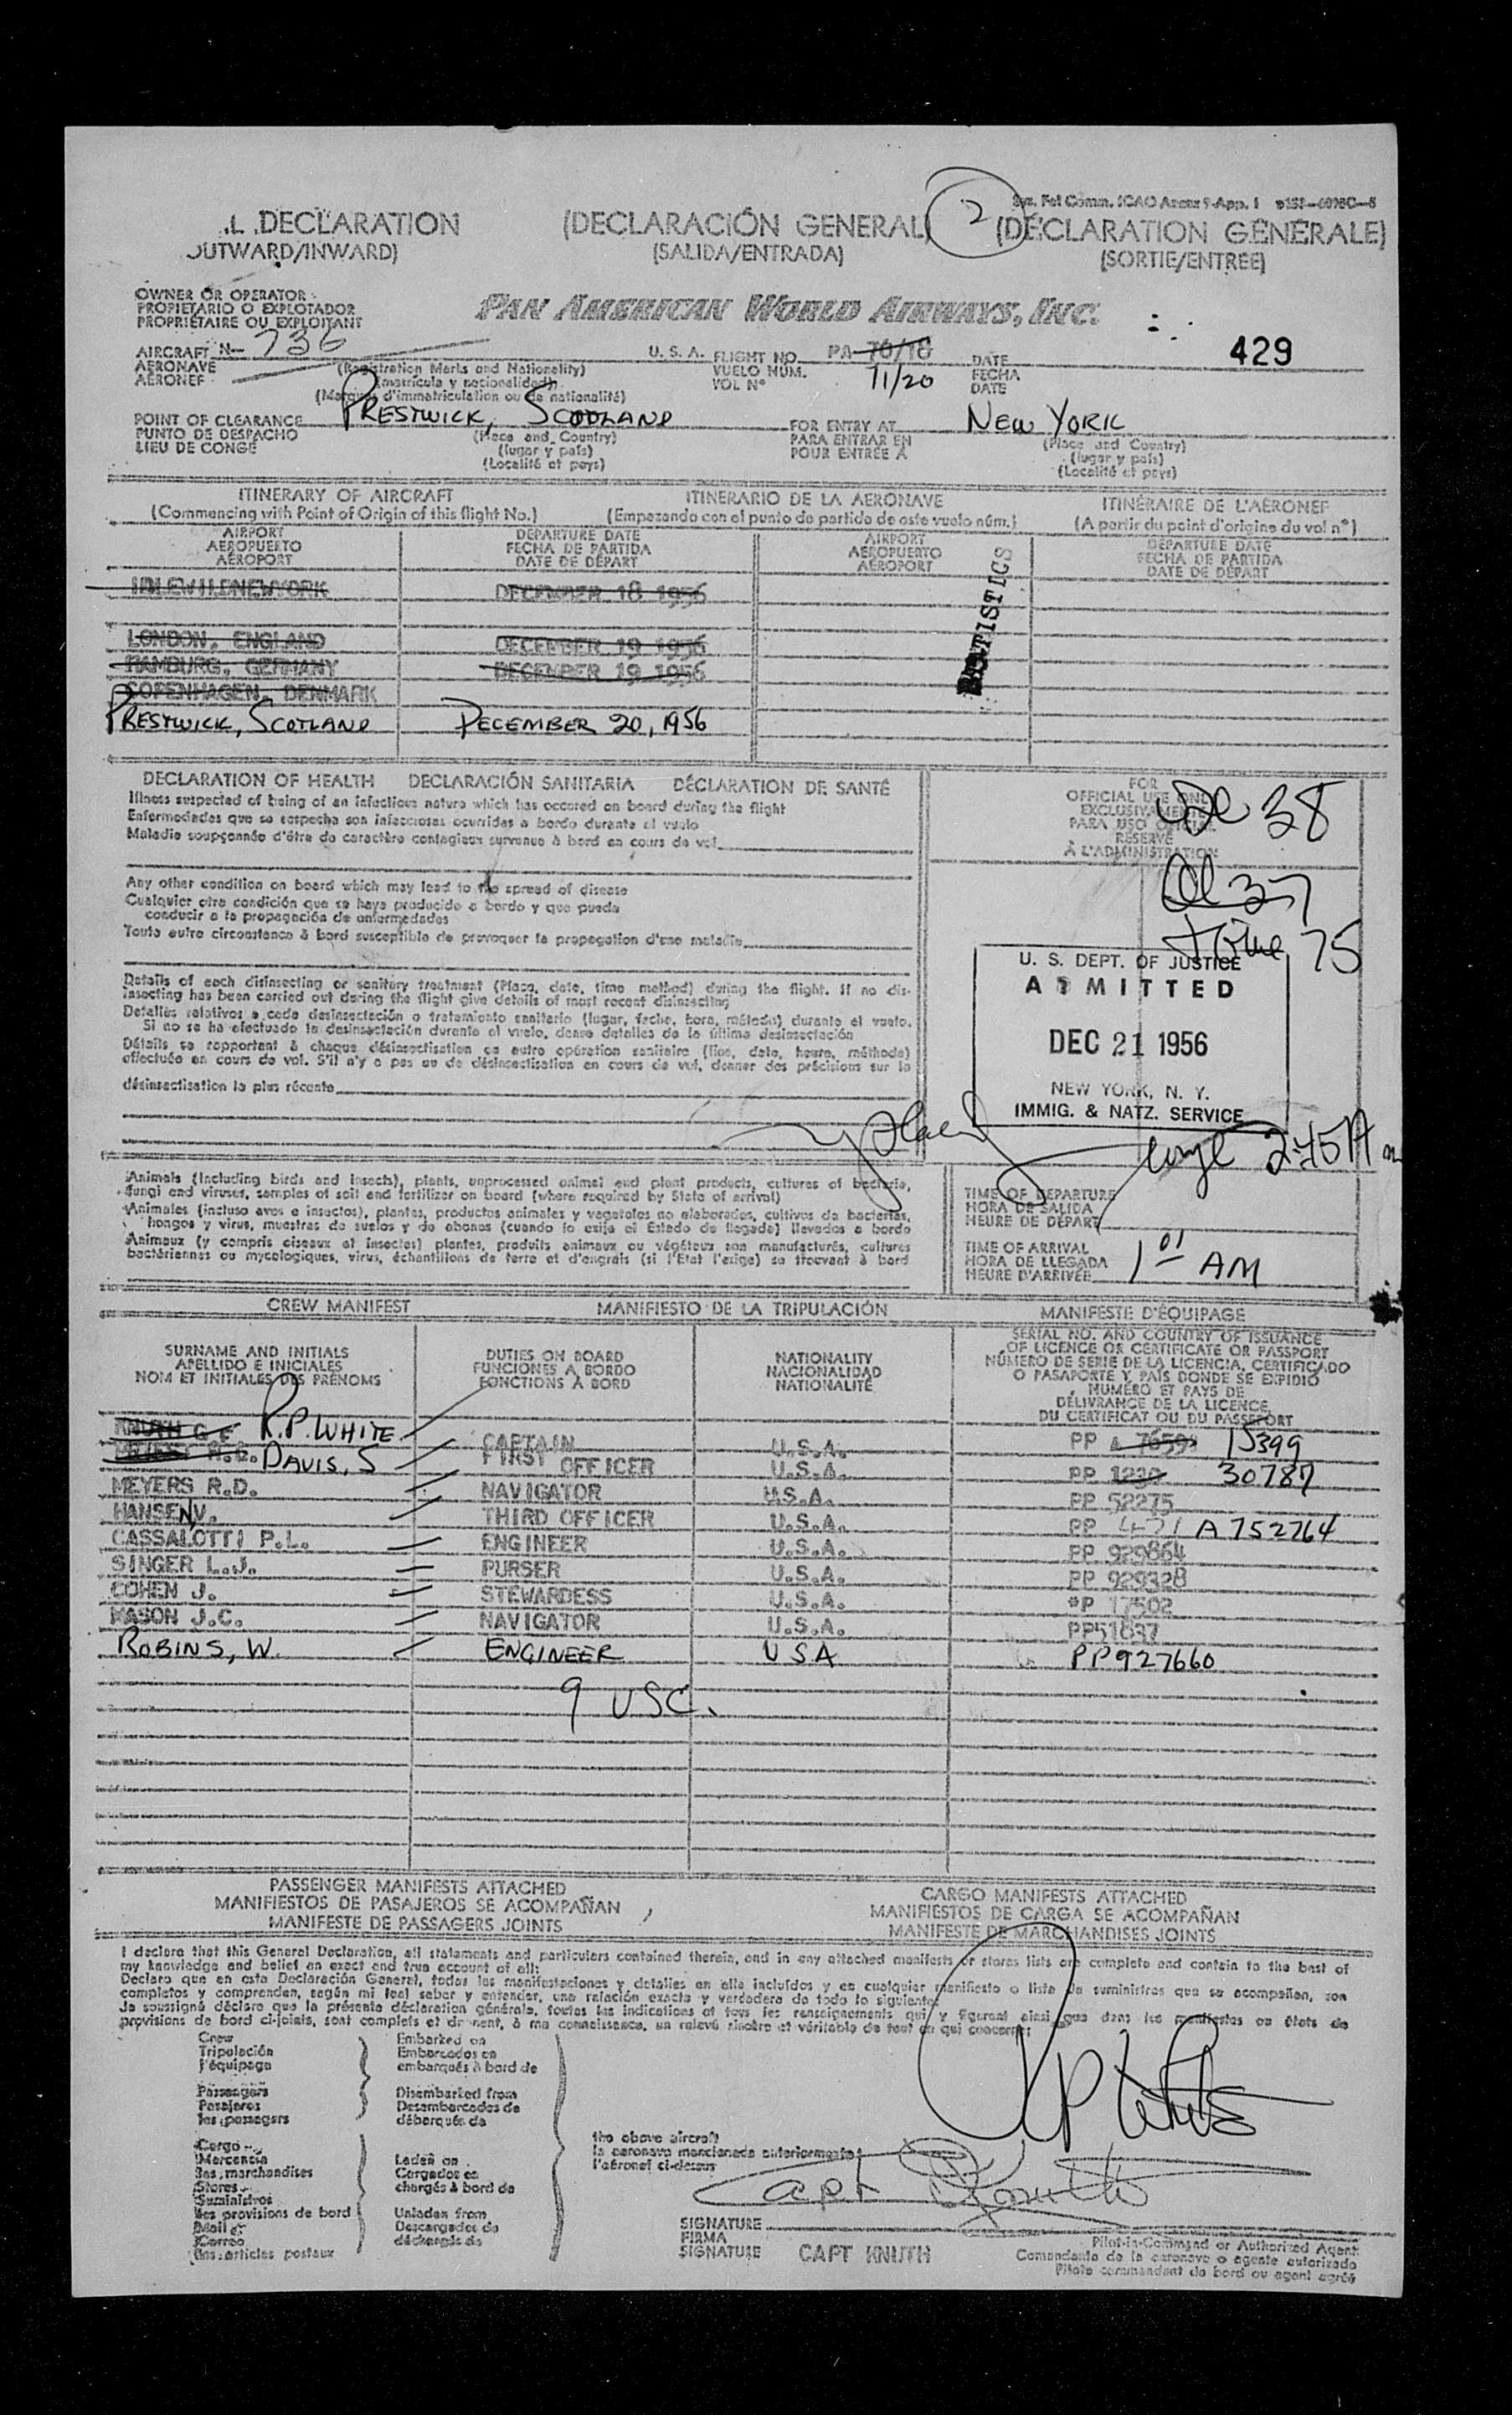 2
.L DECLARATION (DECLARACIÓN GENERAL) (DÉCLARATION GÉNÉRALE)
OUTWARD/INWARD) (SALIDA/ENTRADA) (SORTIE/ENTRÉE)
OWNER OR OPERATOR
PROPIETARIO O EXPLOTADOR
PROPRIÉTAIRE OU EXPLOITANT
PAN AMERICAN WORLD AIRWAYS, INC.
429
AIRCRAFT N- 736 U. S. A. FLIGHT NO. PA 70/18 DATE
AERONAVE (Registration Marks and Nationality) VUELO NÚM. 11/20 FECHA
AÉRONEF (matrícula y nacionalidad) VOL N° DATE
(Marques d'immatriculation ou de nationalité)
POINT OF CLEARANCE PRESTWICK, SCOTLAND FOR ENTRY AT NEW YORK
PUNTO DE DESPACHO (Place and Country) PARA ENTRAR EN (Place and Country)
LIEU DE CONGÉ (lugar y país) POUR ENTRÉE À (lugar y país)
(Localité et pays) (Localité et pays)
ITINERARY OF AIRCRAFT ITINERARIO DE LA AERONAVE ITINÉRAIRE DE L'AÉRONEF
(Commencing with Point of Origin of this flight No.) (Empezando con el punto de partida de este vuelo núm.) (A partir du point d'origine du vol n°)
AIRPORT DEPARTURE DATE AIRPORT DEPARTURE DATE
AEROPUERTO FECHA DE PARTIDA AEROPUERTO FECHA DE PARTIDA
AÉROPORT DATE DE DÉPART AÉROPORT DATE DE DÉPART
IDLEWILDNEWYORK DECEMBER 18 1956
LONDON, ENGLAND DECEMBER 19 1956
HAMBURG, GERMANY DECEMBER 19 1956
COPENHAGEN, DENMARK
PRESTWICK, SCOTLAND DECEMBER 20, 1956
DECLARATION OF HEALTH DECLARACIÓN SANITARIA DÉCLARATION DE SANTÉ
Illness suspected of being of an infectious nature which has occured on board during the flight
Enfermedades que se sospecha son infecciosas ocurridas a bordo durante el vuelo
Maladie soupçonnée d'être de caractère contagieux survenue à bord en cours de vol
FOR
OFFICIAL USE ONLY
EXCLUSIVAMENTE
PARA USO OFICIAL
RÉSERVÉ
À L'ADMINISTRATION
38
37
75
Any other condition on board which may lead to the spread of disease
Cualquier otra condición que se haya producido a bordo y que pueda
conducir a la propagación de enfermedades
Toute autre circonstance à bord susceptible de provoquer la propagation d'une maladie
U. S. DEPT. OF JUSTICE
ADMITTED
DEC 21 1956
NEW YORK, N. Y.
IMMIG. & NATZ. SERVICE
Details of each disinsecting or sanitary treatment (Place, date, time method) during the flight. If no dis-
insecting has been carried out during the flight give details of most recent disinsecting
Detalles relativos a cada desinsectación o tratamiento sanitario (lugar, fecha, hora, método) durante el vuelo.
Si no se ha efectuado la desinsectación durante el vuelo, dense detalles de la última desinsectación
Détails se rapportant à chaque désinsectisation ou autre opération sanitaire (lieu, date, heure, méthode)
effectuée en cours de vol. S'il n'y a pas eu de désinsectisation en cours de vol, donner des précisions sur la
désinsectisation la plus récente
2:45 A m
Animals (including birds and insects), plants, unprocessed animal and plant products, cultures of bacteria,
fungi and viruses, samples of soil and fertilizer on board (where required by State of arrival)
Animales (incluso aves e insectos), plantas, productos animales y vegetales no elaborados, cultivos de bacterias,
hongos y virus, muestras de suelos y de abonos (cuando lo exija el Estado de llegada) llevados a bordo
Animaux (y compris oiseaux et insectes) plantes, produits animaux ou végétaux non manufacturés, cultures
bactériennes ou mycologiques, virus, échantillons de terre et d'engrais (si l'Etat l'exige) se trouvant à bord
TIME OF DEPARTURE
HORA DE SALIDA
HEURE DE DÉPART
TIME OF ARRIVAL
HORA DE LLEGADA 1 01 AM
HEURE D'ARRIVÉE
CREW MANIFEST MANIFIESTO DE LA TRIPULACIÓN MANIFESTE D'ÉQUIPAGE
SURNAME AND INITIALS DUTIES ON BOARD NATIONALITY SERIAL NO. AND COUNTRY OF ISSUANCE
APELLIDO E INICIALES FUNCIONES A BORDO NACIONALIDAD OF LICENCE OR CERTIFICATE OR PASSPORT
NOM ET INITIALES DES PRÉNOMS FONCTIONS À BORD NATIONALITÉ NÚMERO DE SERIE DE LA LICENCIA, CERTIFICADO
O PASAPORTE Y PAÍS DONDE SE EXPIDIÓ
NUMÉRO ET PAYS DE
DÉLIVRANCE DE LA LICENCE
DU CERTIFICAT OU DU PASSEPORT
KNUTH R.P. WHITE CAPTAIN U.S.A. PP 15399
DAVIS, S FIRST OFFICER U.S.A. PP 30787
MEYERS R.D. NAVIGATOR U.S.A. PP 52275
HANSEN V. THIRD OFFICER U.S.A. PP A 752764
CASSALOTTI P.L. ENGINEER U.S.A. PP 929864
SINGER L.J. PURSER U.S.A. PP 929328
COHEN J. STEWARDESS U.S.A. PP 17502
MASON J.C. NAVIGATOR U.S.A. PP51837
ROBINS, W. ENGINEER USA PP927660
9 USC.
PASSENGER MANIFESTS ATTACHED CARGO MANIFESTS ATTACHED
MANIFIESTOS DE PASAJEROS SE ACOMPAÑAN MANIFIESTOS DE CARGA SE ACOMPAÑAN
MANIFESTE DE PASSAGERS JOINTS MANIFESTE DE MARCHANDISES JOINTS
I declare that this General Declaration, all statements and particulars contained therein, and in any attached manifests or stores lists are complete and contain to the best of
my knowledge and belief an exact and true account of all:
Declaro que en esta Declaración General, todas las manifestaciones y detalles en ella incluídos y en cualquier manifiesto o lista de suministros que se acompañan, son
completos y comprenden, según mi leal saber y entender, una relación exacta y verdadera de todo lo siguiente:
Je soussigné déclare que la présente déclaration générale, toutes les indications et tous les renseignements qui y figurent ainsi que dans les manifestes ou états de
provisions de bord ci-joints, sont complets et donnent, à ma connaissance, un relevé sincère et véritable de tout ce qui concerne:
Crew Embarked on
Tripulación Embarcados en
l'équipage embarqués à bord de
Passengers Disembarked from
Pasajeros Desembarcados de
les passagers débarqués de
Cargo
Mercancía Laden on
les marchandises Cargados en
Stores chargés à bord de
Suministros
les provisions de bord Unladen from
Mail Descargados de
Correo déchargés de
les articles postaux
the above aircraft
la aeronave mencionada anteriormente
l'aéronef ci-dessus
RP White
Capt Knuth
SIGNATURE
FIRMA
SIGNATURE CAPT KNUTH
Pilot-in-Command or Authorized Agent
Comandante de la aeronave o agente autorizado
Pilote commandant de bord ou agent agréé